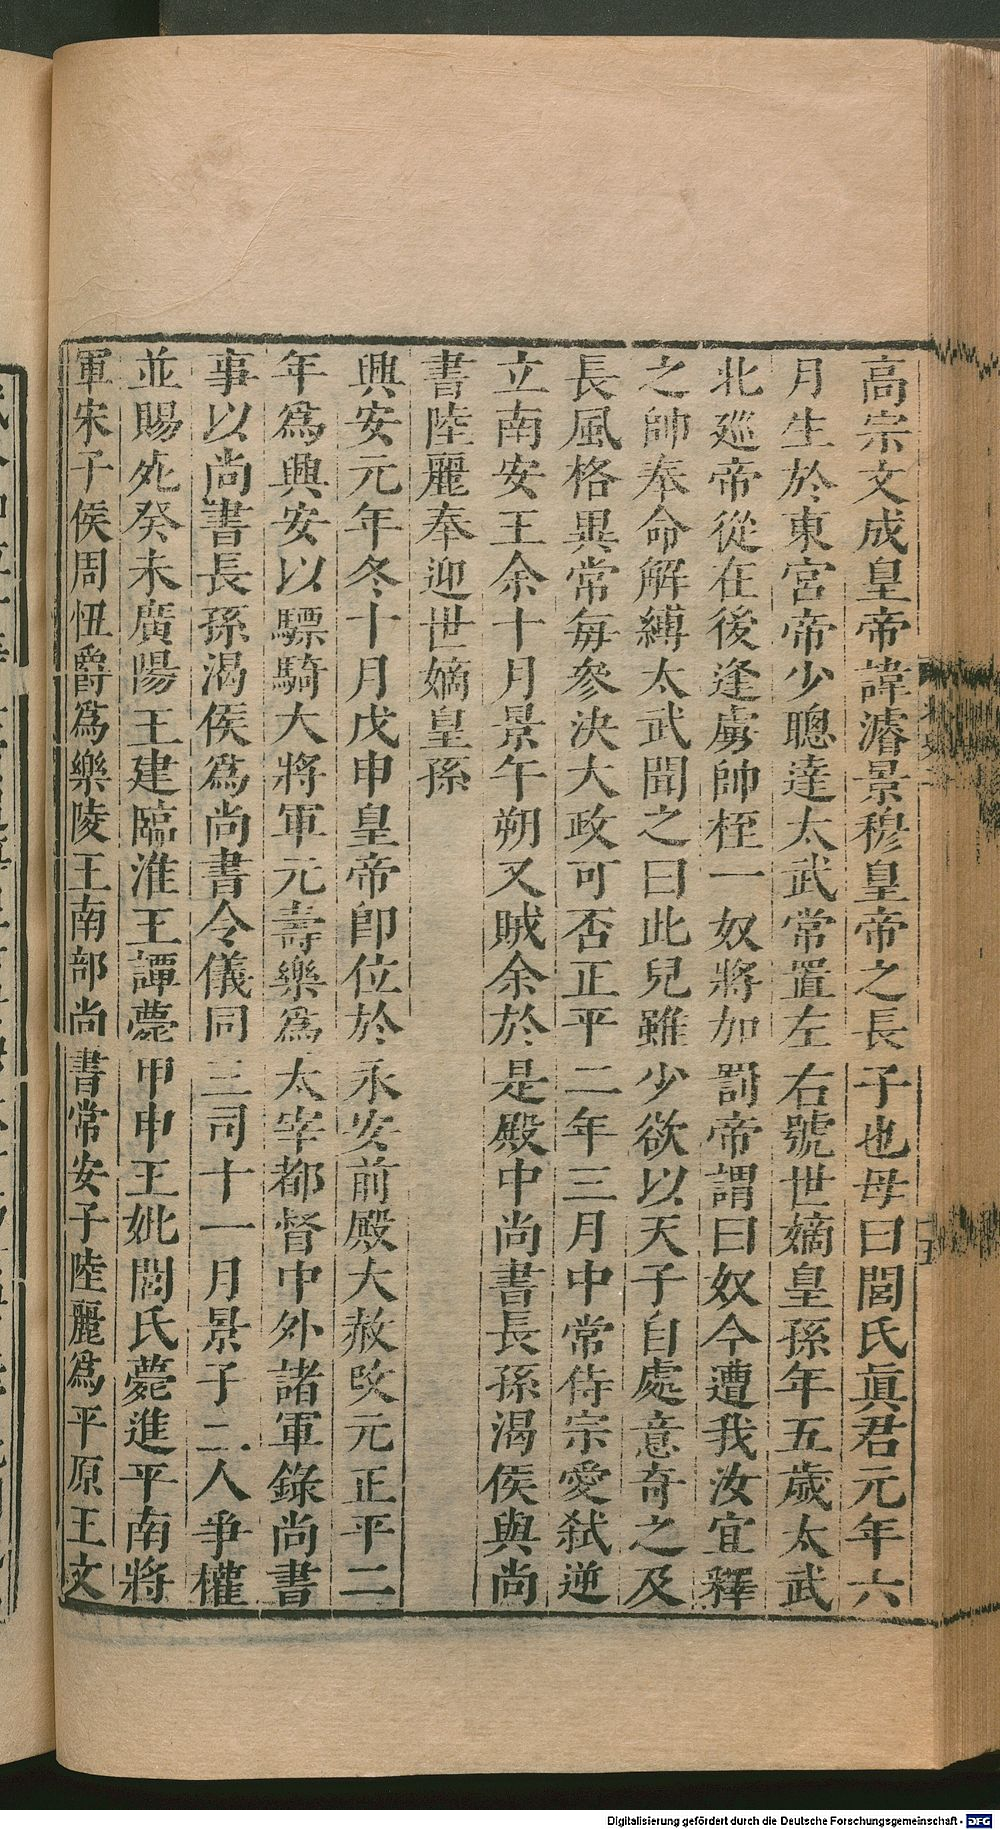 高宗文成皇帝諱濬景穆皇帝之長子也母曰閭氏眞君元年六
月生於東宮帝少聰達太武常置左右號世嫡皇孫年五歲太武
北廵帝從在後逢虜帥桎一奴將加罰帝謂曰奴今遭我汝宜釋
之帥奉命解縛太武聞之曰此兒雖少欲以天子自處意奇之及
長風格異常毎參決大政可否正平二年三月中常侍宗愛弑逆
立南安王余十月景午朔又賊余於是殿中尚書長孫渴侯與尚
書陸麗奉迎世嫡皇孫
興安元年冬十月戊申皇帝卽位於永安前殿大赦改元正平二
年爲興安以驃騎大將軍元壽樂爲太宰都督中外諸軍錄尚書
事以尚書長孫渴侯爲尚書令儀同三司十一月景子二人爭權
並賜死癸未廣陽王建臨淮王譚薨甲申王妣閭氏薨進平南將
軍宋子侯周忸爵爲樂陵王南部尚書常安子陸麗爲平原王文
Digitalisierung gefördert durch die Deutsche Forschungsgemeinschaft - DFG